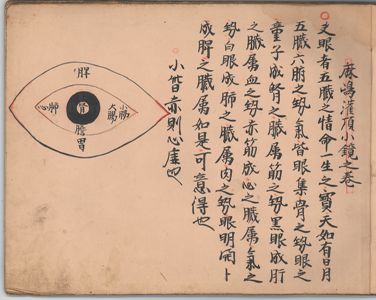 麻嶋灌頂小鏡之巻
夫眼者五臓之情命一生之寶天如有日月
五臓六腑之勢氣皆眼集骨之勢眼之
童子成腎之臓属筋之勢黒眼成肝
之臓属血之勢赤筋成心之臓属氣之
勢白眼成肺之臓属肉之勢眼明閉ト
成脾之臓属如是可意得也
小眥赤則心虚也
脾
小腸
大腸
腎
肺
心
膽
胃